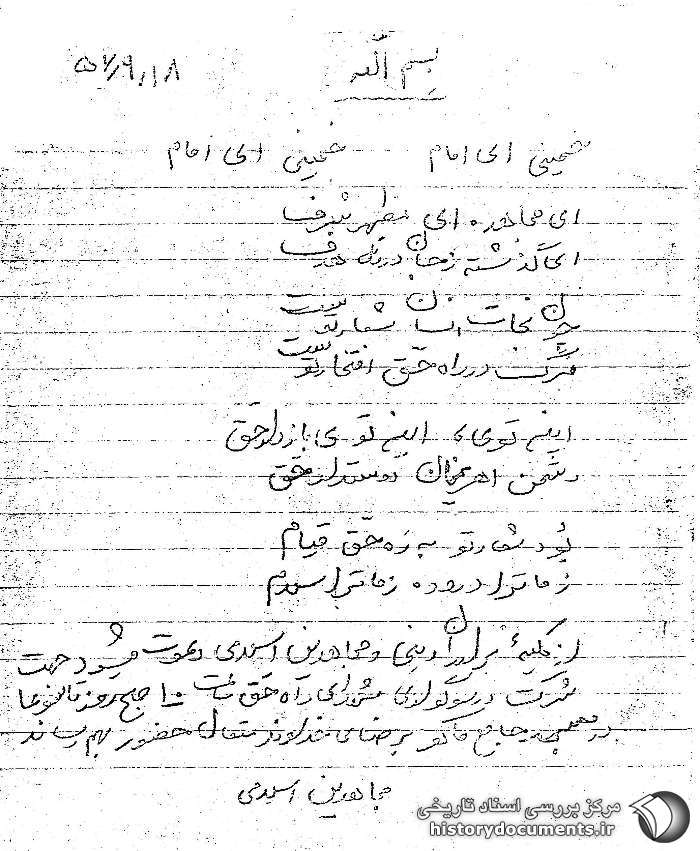 بسم الله
۵۷٫۹٫۱۸
خمینی ای امام خمینی ای امام
ای مجاهد ای مظهر شرف
ای گذشته ز جان در ره هدف
چون نجات انسان شعار تست
مرگ در راه حق افتخار تست
این توی، این توی پاردار حق
دشمن اهریمنان دوستدار حق
بود شعار تو به ره حق قیام
ز ما ترا درود ز ما ترا سلام
از کلیهٔ برادران دینی و مجاهدین اسلامی دعوت میشود جهت
شرکت در سوگواری شهدای راه حق ساعت ۱۰ صبح روز
در مسجد جامع ماکو برضای خداوند متعال حضور بهم رسانند
مجاهدین اسلامی
مرکز بررسی اسناد تاریخی
historydocuments.ir